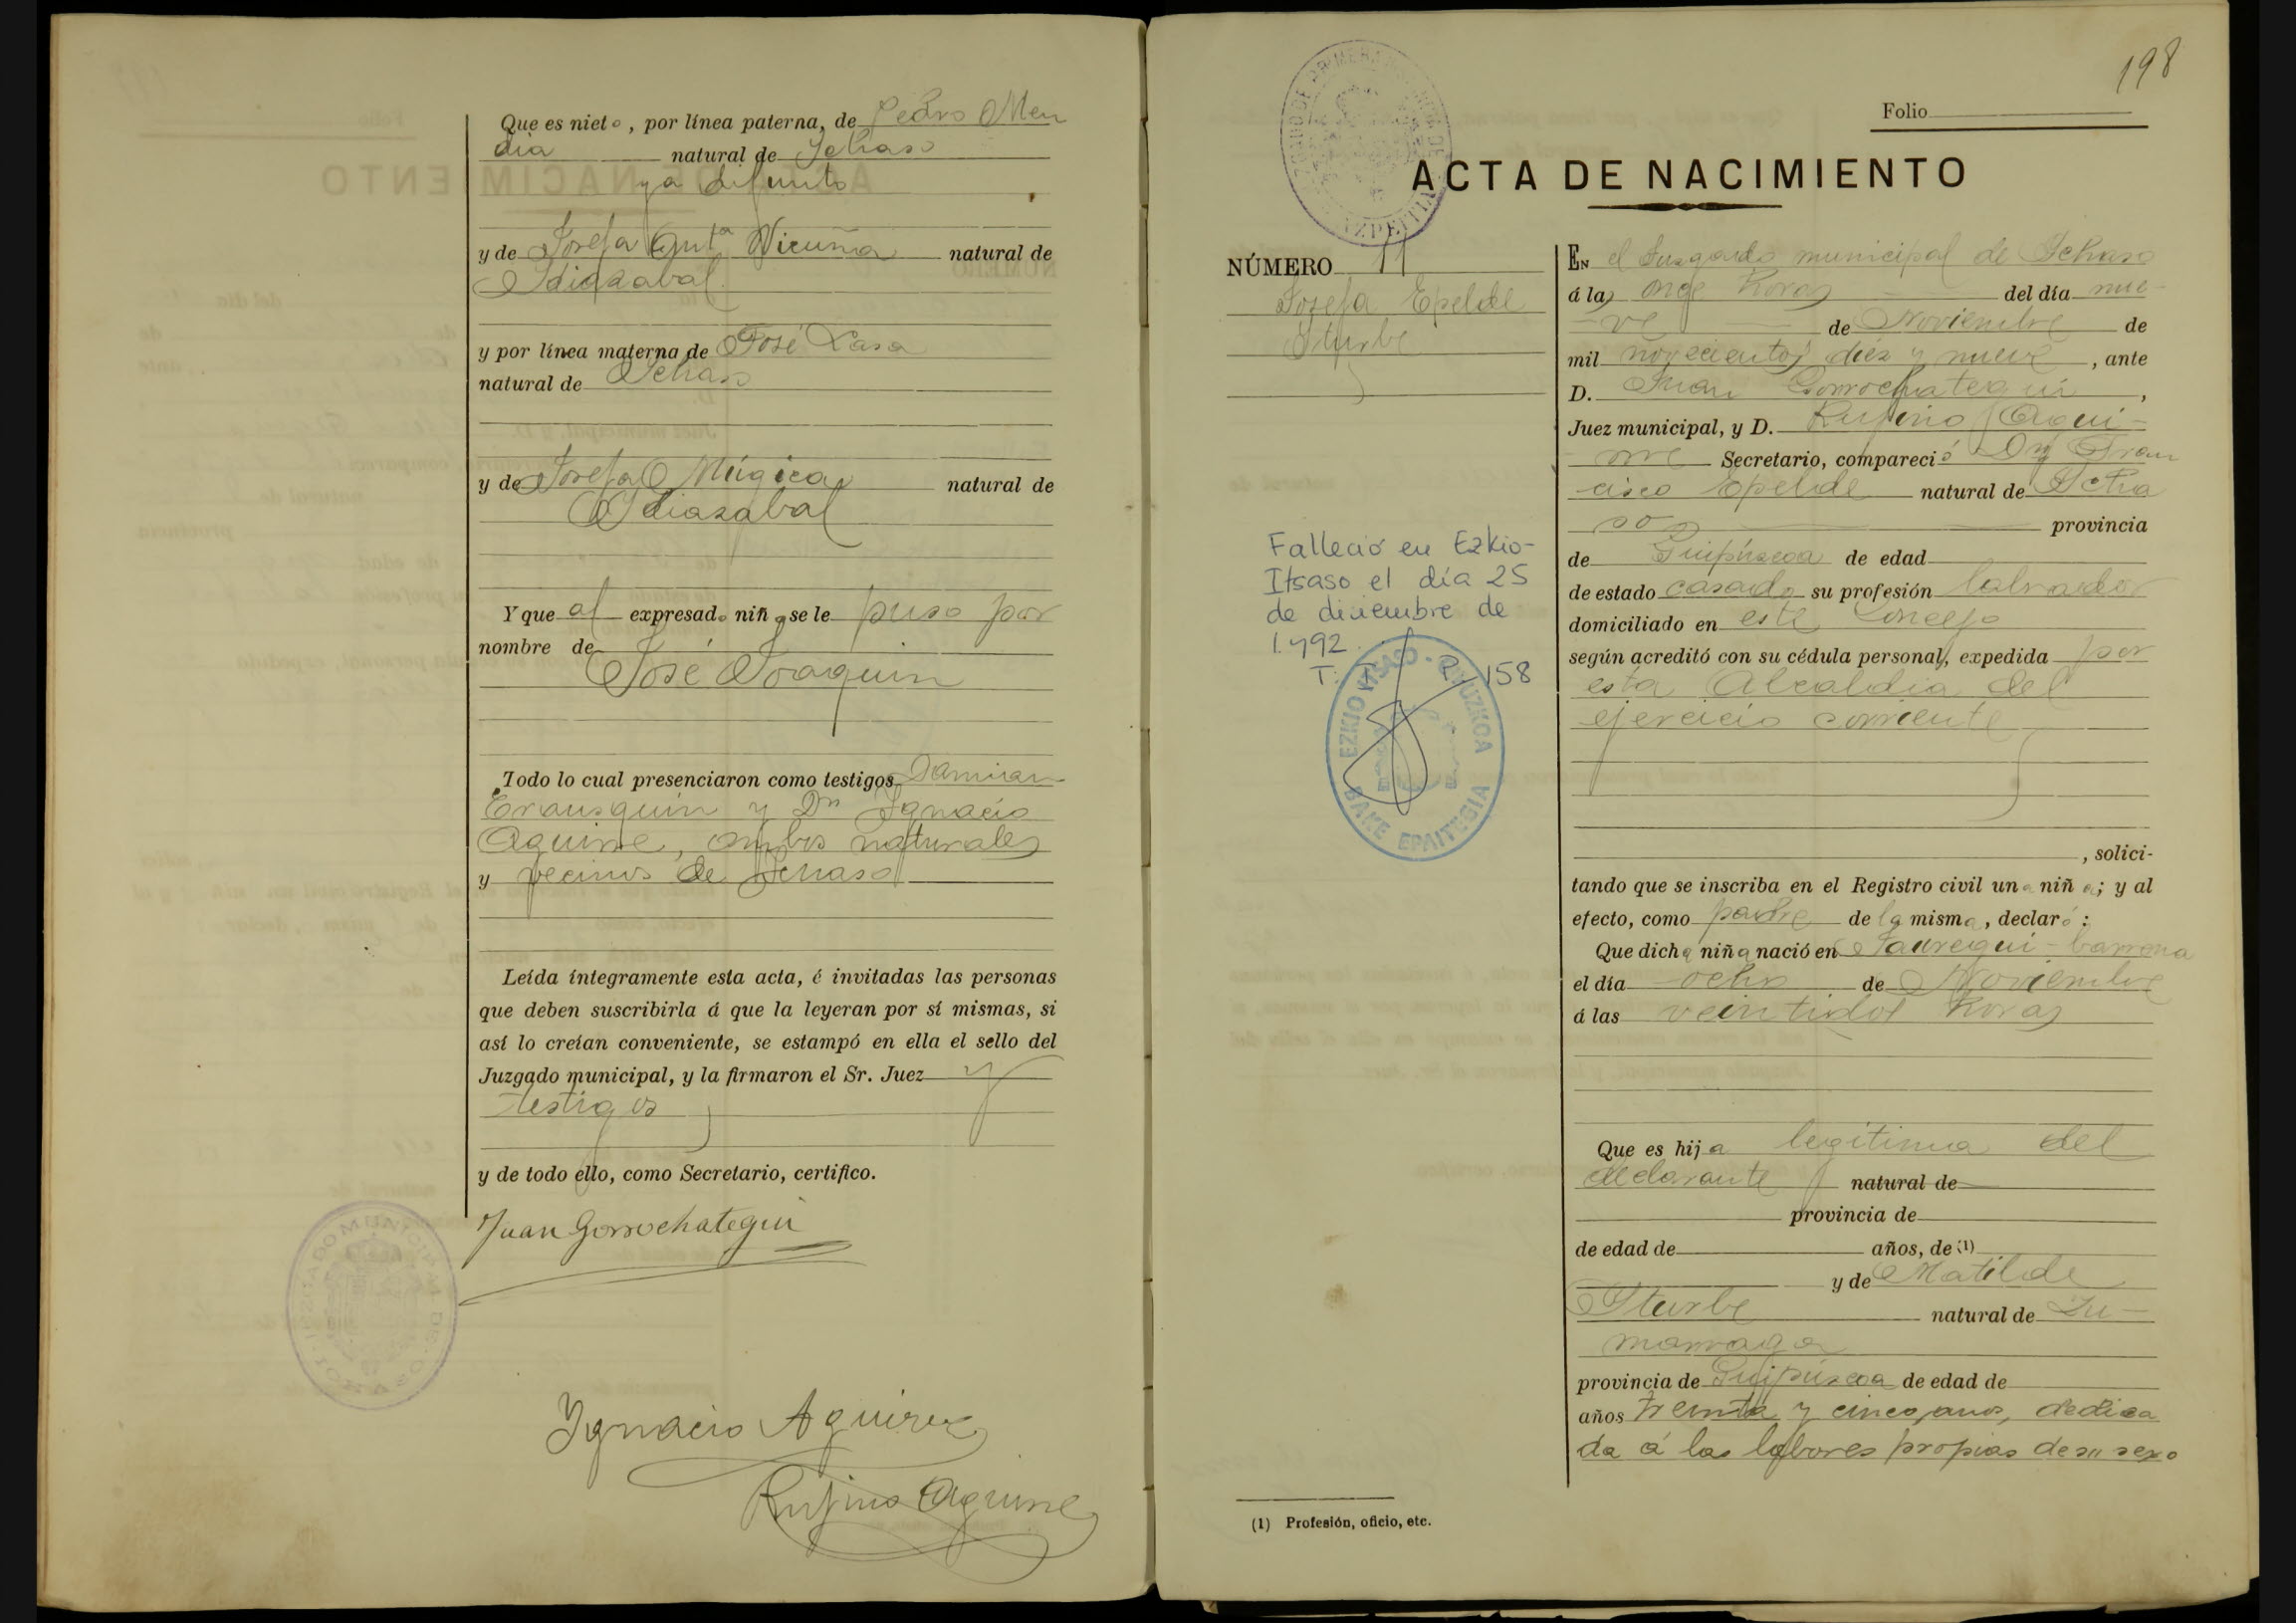 Que es nieto, por línea paterna, de Pedro Men
dia natural de Ichaso
ya difunto
y de Josefa Ant.ª Vicuña natural de
Idiazabal
y por línea materna de José Lasa
natural de Ichaso
y de Josefa Múgica natural de
Idiazabal
Y que al expresado niño se le puso por
nombre de
José Joaquin
Todo lo cual presenciaron como testigos Damian
Erausquin y Dn Ignacio
Aguirre, ambos naturales
y vecinos de Ichaso
Leída íntegramente esta acta, é invitadas las personas
que deben suscribirla á que la leyeran por sí mismas, si
así lo creían conveniente, se estampó en ella el sello del
Juzgado municipal, y la firmaron el Sr. Juez y
testigos
y de todo ello, como Secretario, certifico.
Juan Gorrochategui
JUZGADO MUNICIPAL DE
Ignacio Aguirre
Rufino Aguirre
198
Folio
ACTA DE NACIMIENTO
AZPEITIA
NÚMERO 11
Josefa Epelde
Iturbe
Falleció en Ezkio-
Itsaso el día 25
de diciembre de
1.992.
T: P. 158
EZKIO ITSASO - GIPUZKOA
BAKE EPAITEGIA
EN el Juzgado municipal de Ichaso
á las once horas del día nue-
ve de Noviembre de
mil novecientos diez y nueve, ante
D. Juan Gorrochategui,
Juez municipal, y D. Rufino Agui-
rre Secretario, compareció Dn Fran
cisco Epelde natural de Icha
so provincia
de Guipúzcoa de edad
de estado casado su profesión labrador
domiciliado en este Concejo
según acreditó con su cédula personal, expedida por
esta Alcaldia del
ejercicio corriente
, solici-
tando que se inscriba en el Registro civil una niña; y al
efecto, como padre de la misma, declaró:
Que dicha niña nació en Jauregui-barrena
el día ocho de Noviembre
á las veintidos horas
Que es hija legítima del
declarante natural de
provincia de
de edad de años, de (1)
y de Matilde
Iturbe natural de Zu-
marraga
provincia de Guipúzcoa de edad de
años treinta y cinco años, dedica
da á las labores propias de su sexo
(1) Profesión, oficio, etc.